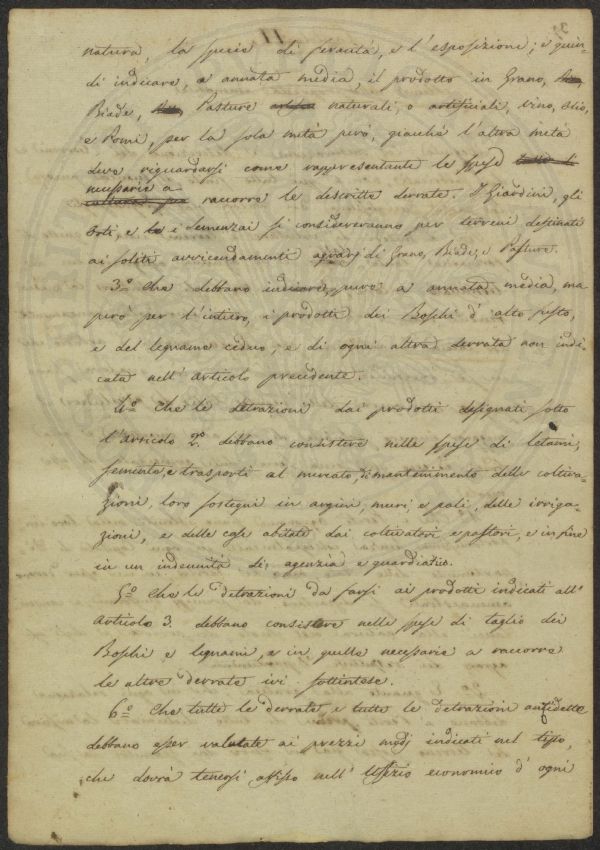 11
natura, la specie di feracità, e l'esposizione; e quin-
di indicare, a annata media, il prodotto in Grano,
Biade, Pasture naturali, o artificiali, vino, olio,
e Pomi, per la sola metà però, giacchè l'altra metà
deve riguardarsi come rappresentante le spese
necessarie a
raccorre le descritte derrate. I Giardini, gli
Orti, e i Semenzai si considereranno per terreni destinati
ai soliti avvicendamenti agrarj di Grano, Biade, e Pasture.
3.º che debbano indicare, pure a annata media, ma
però per l'intiero, i prodotti dei Boschi d'alto fusto,
e del legname ceduo, e di ogni altra derrata non indi-
cata nell'articolo precedente.
4.º che le detrazioni dai prodotti designati sotto
l'articolo 2.º debbano consistere nelle spese di letami,
semente, e trasporti al mercato, di mantenimento delle coltiva-
zioni, loro sostegni in argini, muri, e pali, delle irriga-
zioni, e delle case abitate dai coltivatori e pastori, e infine
in un indennità di agenzia e guardiatico.
5.º che le detrazioni da farsi ai prodotti indicati all'
Articolo 3. debbano consistere nelle spese di taglio dei
Boschi e legnami, e in quelle necessarie a raccorre
le altre derrate ivi sottintese.
6.º che tutte le derrate, e tutte le detrazioni antidette
debbano esser valutate ai prezzi medj indicati nel
che dovrà tenersi affisso nell'Uffizio economico d'ogni